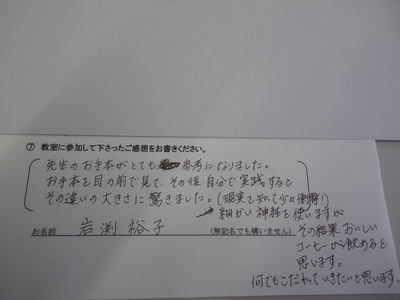 ⑦ 教室に参加して下さったご感想をお書きください。
先生のお手本がとても参考になりました。
お手本を目の前で見て、その後自分で実践すると
その違いの大きさに驚きました。(現実を知って少々衝撃!)
→細かい神経を使いますが
その結果おいしい
コーヒーが飲めると
思います。
何でもこだわっていきたいと思います。
お名前 岩渕 裕子 (無記名でも構いません)